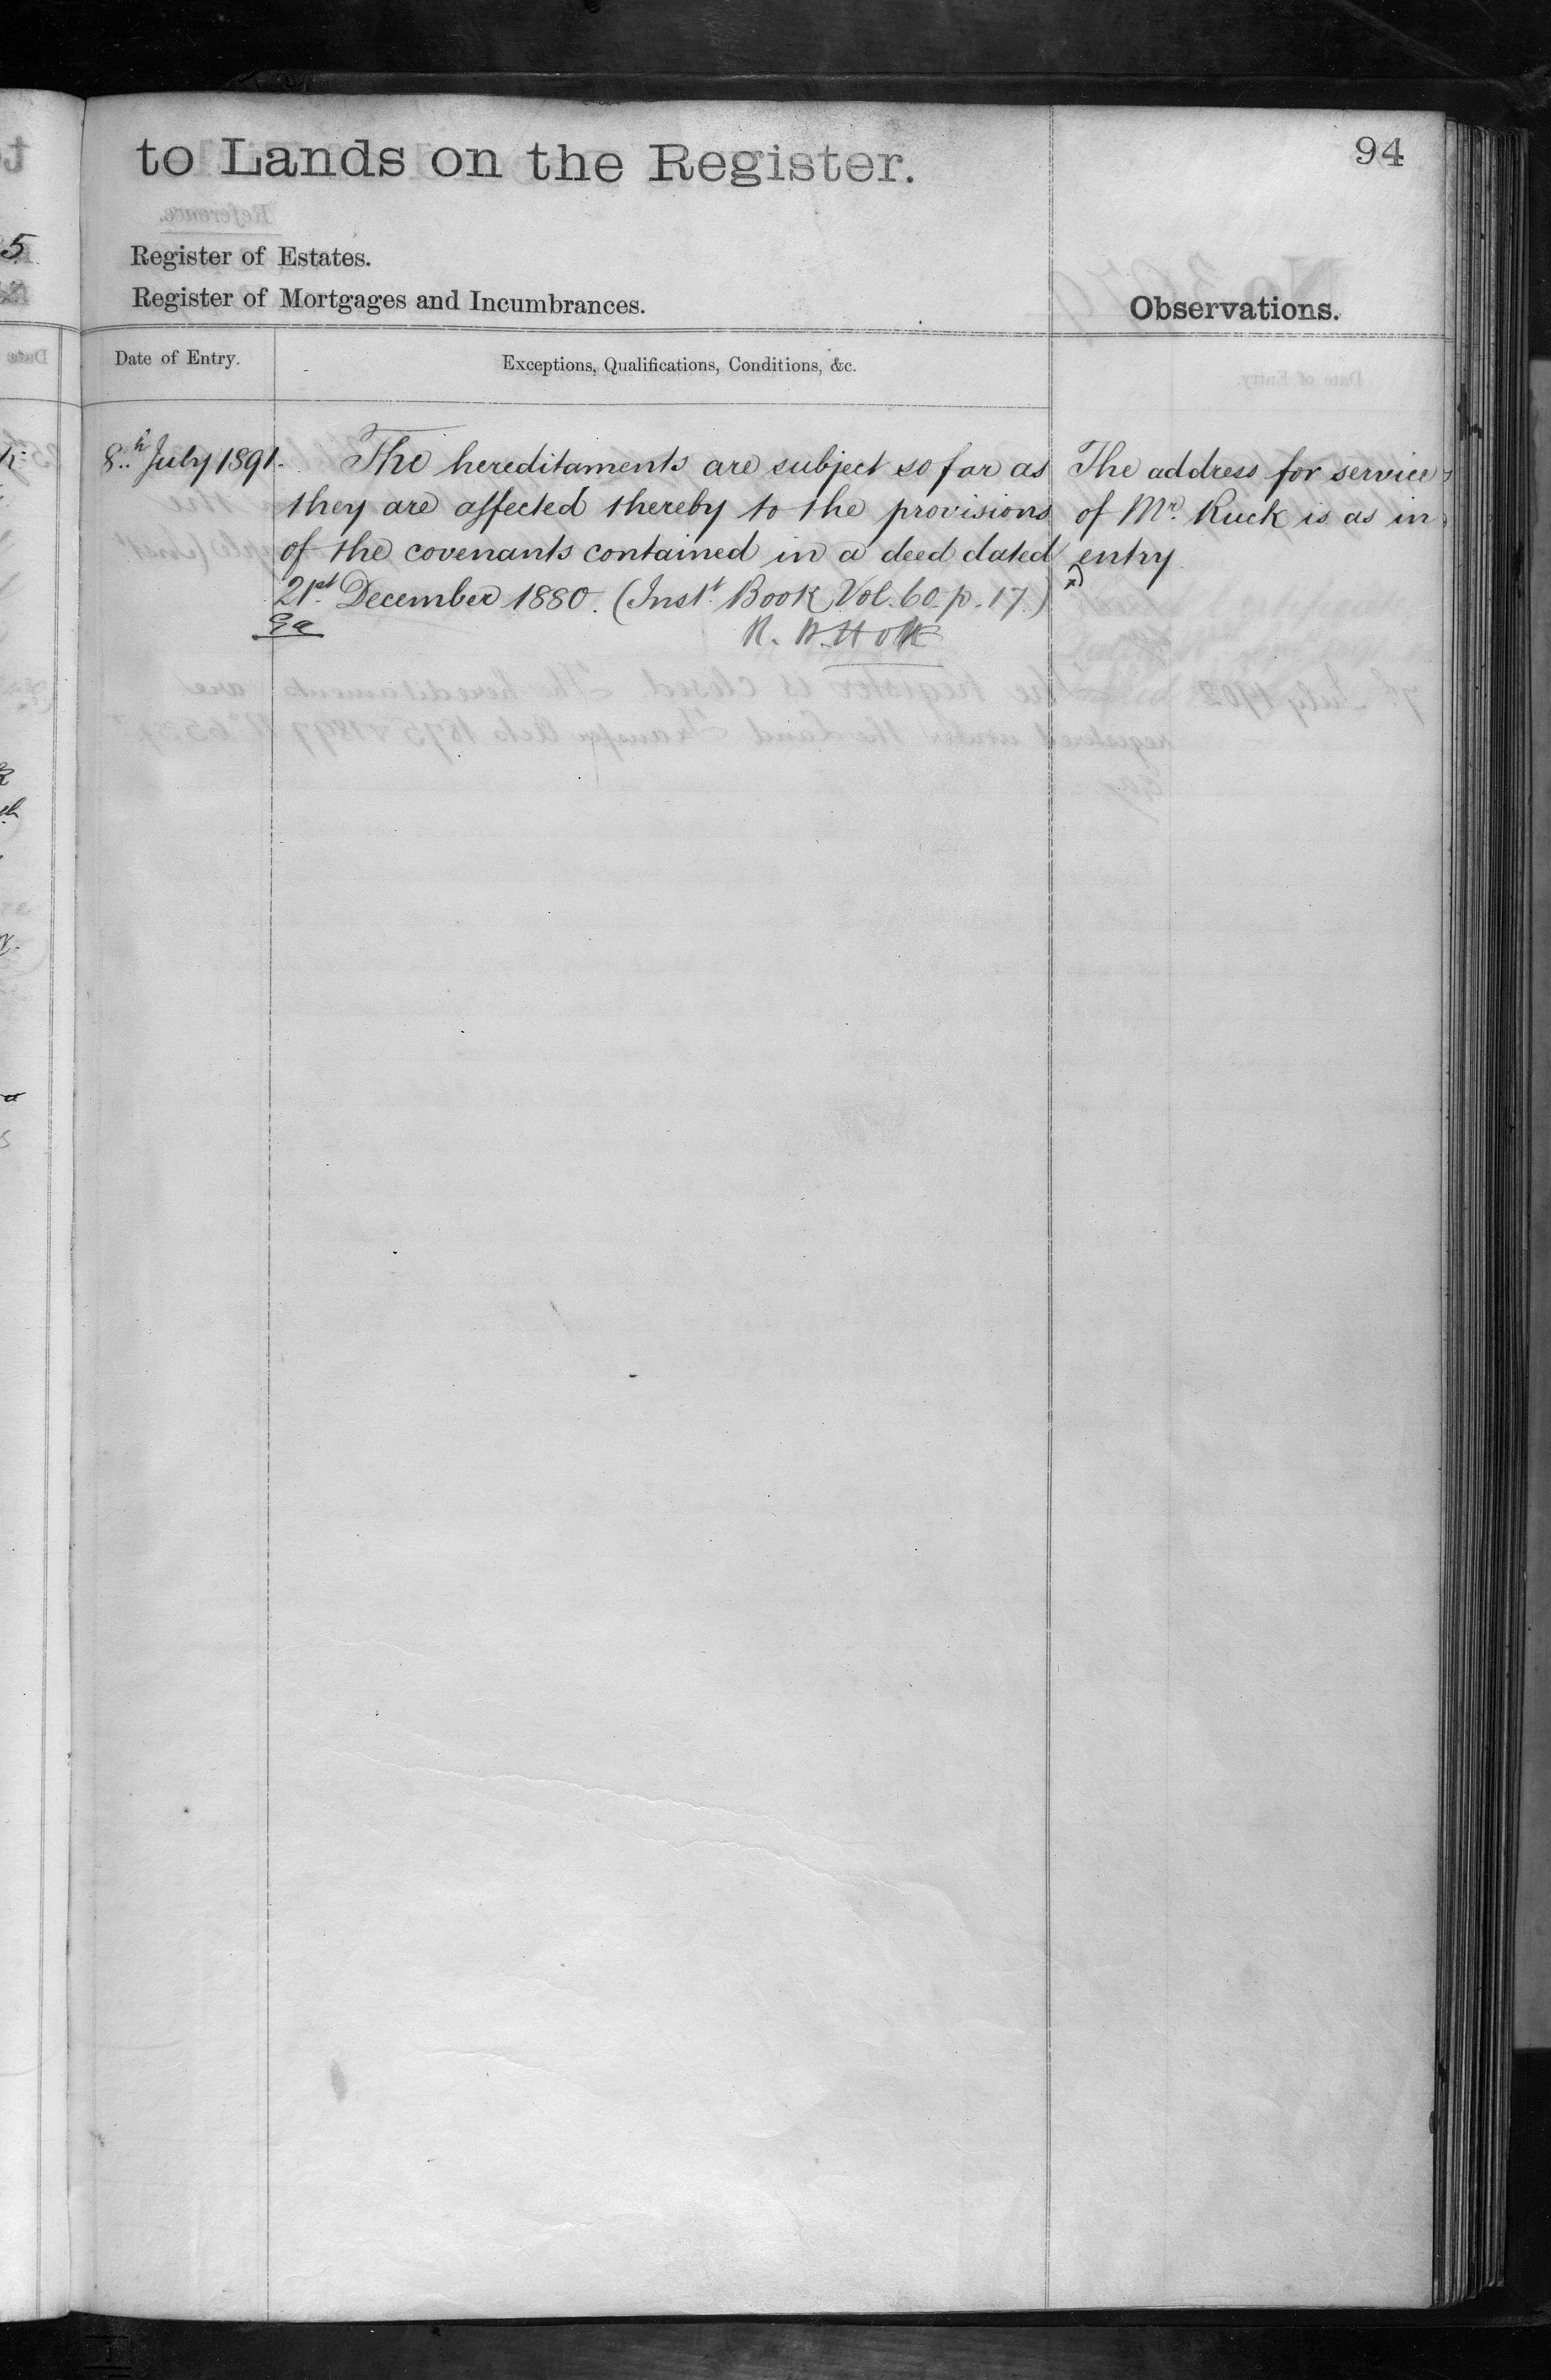 to Lands on the Register.
94
Register of Estates.
Register of Mortgages and Incumbrances.
Observations.
Date of Entry.
Exceptions, Qualifications, Conditions, &c.
8th July 1891.
The hereditaments are subject so far as
they are affected thereby to the provisions
of the covenants contained in a deed dated
21st December 1880. (Inst. Book Vol. 60. p. 17.)
R. W. Holt
The address for service
of Mr. Ruck is as in
entry